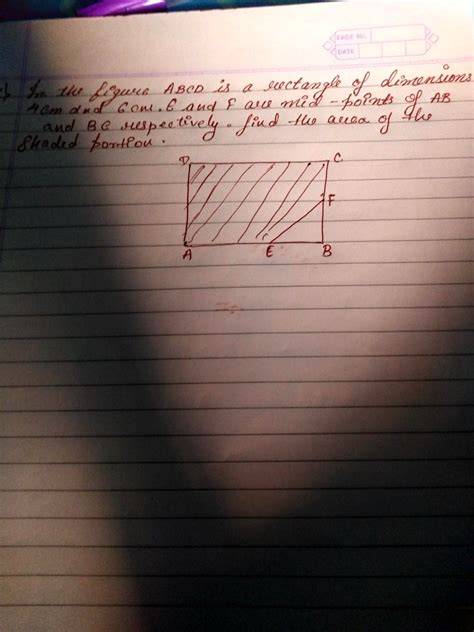 PAGE No.
DATE
In the figure ABCD is a rectangle of dimensions
4cm and 6cm. E and F are mid-points of AB
and BC respectively. find the area of the
shaded portion.
D C
F
A E B